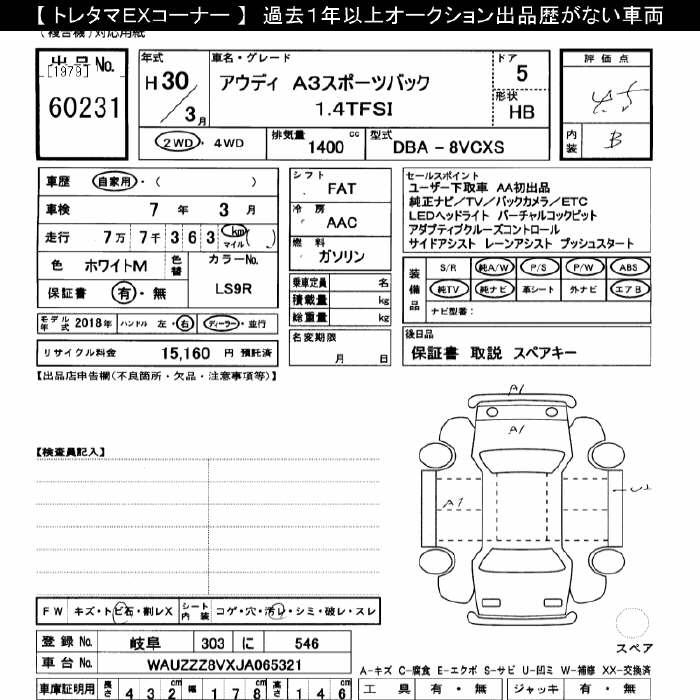 【 トレタマEXコーナー 】 過去１年以上オークション出品歴がない車両
(複合機)対応用紙
出品No.
[1979]
60231
年式
H30
3月
車名・グレード
アウディ A3スポーツバック
1.4TFSI
ドア
5
形状
HB
2WD・4WD
排気量 1400 cc
型式 DBA－8VCXS
評価点
4.5
内装 B
車歴 自家用・( )
車検 7年 3月
走行 7万 7千 3 6 3 km マイル ( )
色 ホワイトM 色替
カラーNo. LS9R
保証書 有・無
モデル年式 2018年 ハンドル 左・右 ディーラー・並行
リサイクル料金 15,160 円 預託済
シフト FAT
冷房 AAC
燃料 ガソリン
乗車定員 名
積載量 kg
総重量 kg
名変期限
月 日
セールスポイント
ユーザー下取車 AA初出品
純正ナビ／TV／バックカメラ／ETC
LEDヘッドライト バーチャルコックピット
アダプティブクルーズコントロール
サイドアシスト レーンアシスト プッシュスタート
装備品
S/R 純A/W P/S P/W ABS
純TV 純ナビ 革シート 外ナビ エアB
ナビ型番：
後日品
保証書 取説 スペアキー
【出品店申告欄(不良箇所・欠品・注意事項等)】
【検査員記入】
A1
A1
A1
スペア
FW キズ・トビ石・割レX
シート内装 コゲ・穴・汚レ・シミ・破レ・スレ
登録No. 岐阜 303 に 546
車台No. WAUZZZ8VXJA065321
A-キズ C-腐食 E-エクボ S-サビ U-凹ミ W-補修 XX-交換済
車庫証明用 長さ 4 3 2 cm 幅 1 7 8 cm 高さ 1 4 6 cm
工具 有・無 ジャッキ 有・無